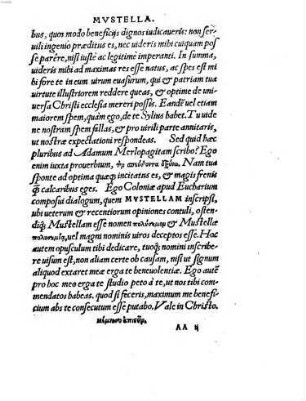 MVSTELLA.
bus, quon modo beneficijs dignos iudicaueris: non ser
uili ingenio præditus es, nec uideris mihi cuiquam pos
se parêre, nisi iustè ac legitimè imperanti. In summa,
uideris mihi ad maximas res esse natus, ac spes est mi
hi fore te in eum uirum euasurum, qui & patriam tua
uirtute illustriorem reddere queas, & optime de uni=
uersa Christi ecclesia mereri possis. Eandē uel etiam
maiorem spem, quàm ego, de te Syluius habet. Tu uide
ne nostram spem fallas, & pro uirili parte annitaris,
ut nostræ expectationi respondeas. Sed quid hæc
pluribus ad Adamum Merlopagitam scribo? Ego
enim iuxta prouerbium,
sponte ad optima quæq; incitatus es, & magis freni
q̃ calcaribus eges. Ego Coloniæ apud Eucharium
composui dialogum, quem MVSTELLAM inscripsi,
ubi ueterum & recentiorum opiniones contuli, osten=
diq; Mustellam esse nomen & Mustellæ
uel magni nominis uiros deceptos esse. Hoc
autem opusculum tibi dedicare, tuoq; nomini inscribe
re uisum est, non aliam certe ob causam, nisi ut signum
aliquod extaret meæ erga te beneuolentiæ. Ego autē
pro hoc meo erga te studio peto à te, ut nos tibi com
mendatos habeas. quod si feceris, maximum me benefi
cium abs te consecutum esse putabo. Vale in Christo.
AA ij